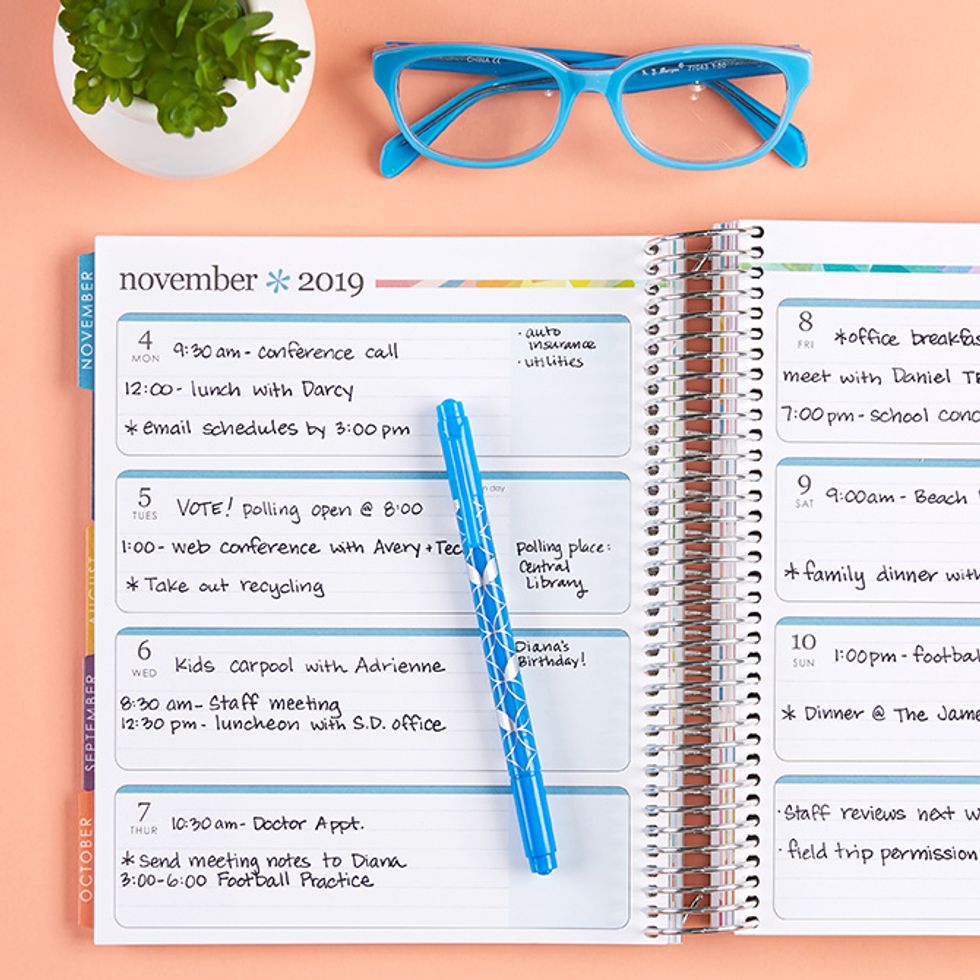 CHINA CE
november * 2019
NOVEMBER
AUGUST
SEPTEMBER
OCTOBER
4
MON
9:30 am - conference call
12:00 - lunch with Darcy
* email schedules by 3:00 pm
· auto
insurance
· utilities
5
TUES
VOTE! polling open @ 8:00
day
1:00 - web conference with Avery + Tec
* Take out recycling
Polling place:
Central
Library
6
WED
Kids carpool with Adrienne
8:30 am - Staff meeting
12:30 pm - luncheon with S.D. office
Diana's
Birthday!
7
THUR
10:30 am - Doctor Appt.
* Send meeting notes to Diana
3:00-6:00 Football Practice
8
FRI
* office breakfas
meet with Daniel TE
7:00 pm - school conc
9
SAT
9:00am - Beach
* family dinner with
10
SUN
1:00pm - footbal
* Dinner @ The Jame
· Staff reviews next w
· field trip permission